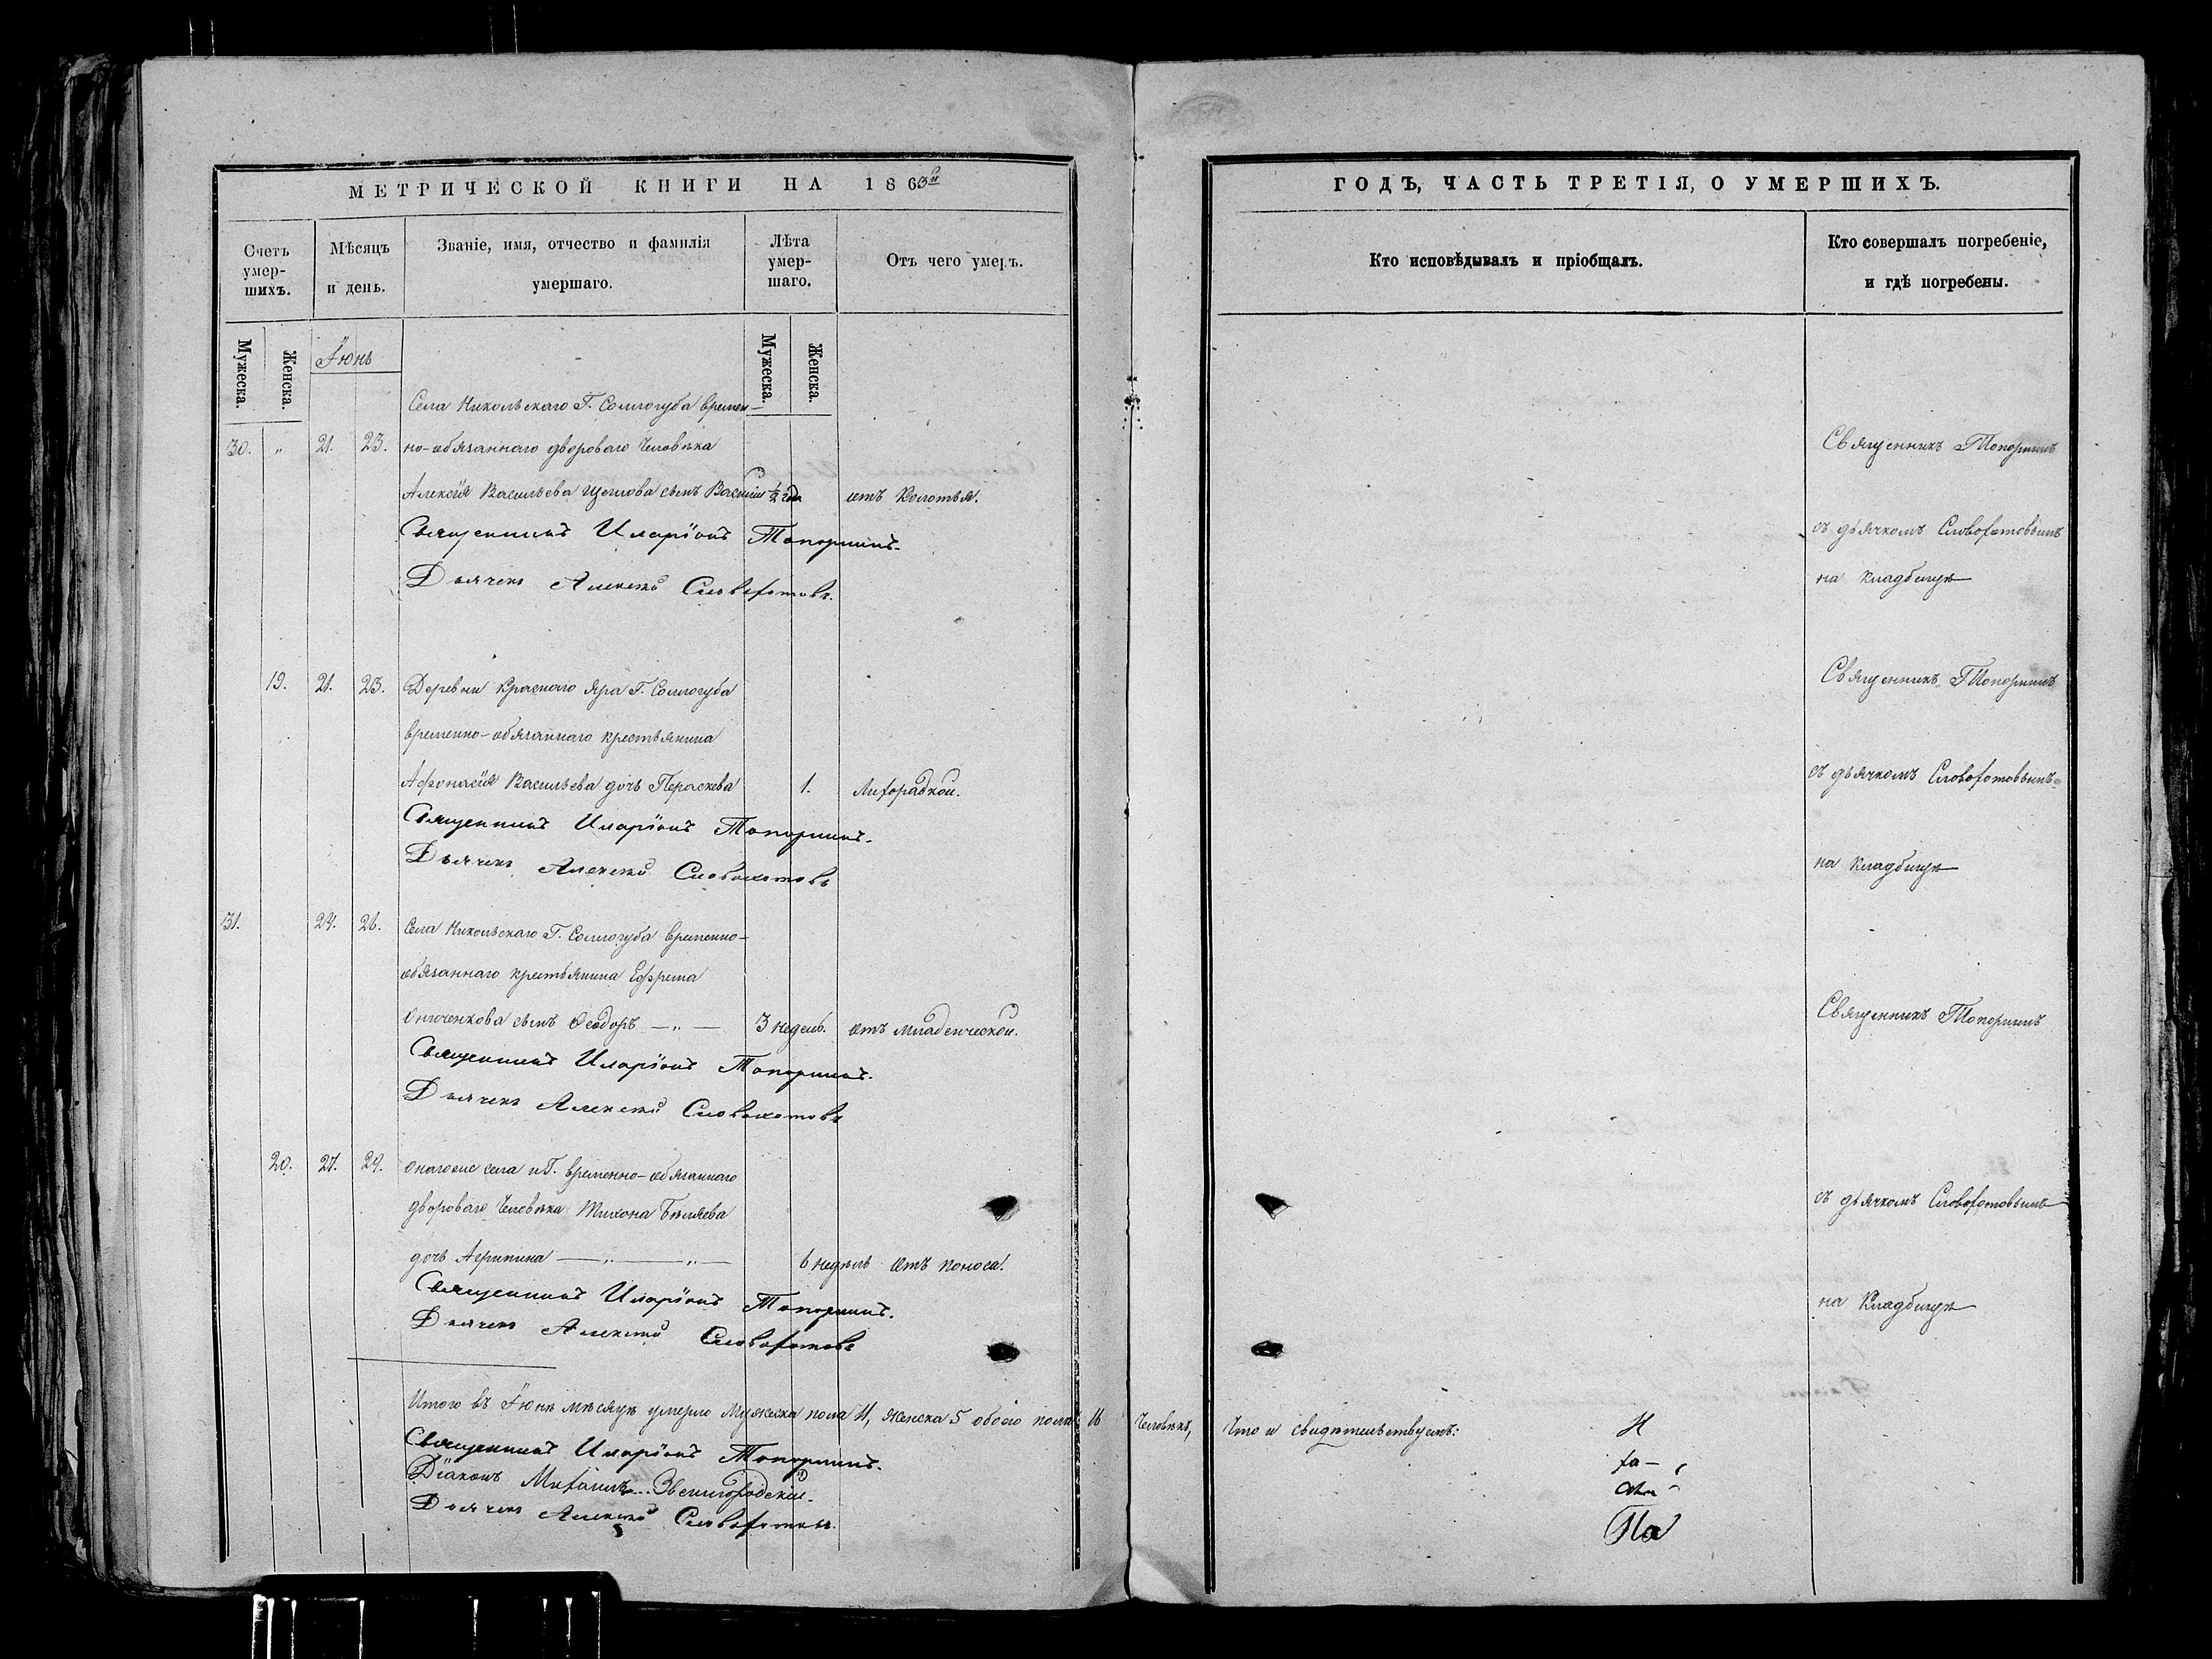 МЕТРИЧЕСКОЙ КНИГИ НА 1863й
Счетъ умер-шихъ.
Мѣсяцъ и день.
Званіе, имя, отчество и фамилія умершаго.
Лѣта умер-шаго.
Отъ чего умеръ.
Мужеска.
Женска.
Мужеска.
Женска.
Іюнь
Села Никольскаго Г. Соллогуба времен-
30. „ 21. 23. но-обязаннаго двороваго человѣка
Алексія Васильева сынъ Василій ½ года отъ Колотья.
Священникъ Иларіонъ Топорнинъ.
Дьячекъ Алексѣй Словохотовъ.
19. 21. 23. Деревни Краснаго Яра Г. Соллогуба
временно-обязаннаго крестьянина
Афонасія Васильева дочь Параскева 1. Лихорадкой.
Священникъ Иларіонъ Топорнинъ.
Дьячекъ Алексѣй Словохотовъ
31. 24. 26. Села Никольскаго Г. Соллогуба временно-
обязаннаго крестьянина Ефрема
сынъ Ѳеодоръ — „ — 3 недель. отъ младенческой.
Священникъ Иларіонъ Топорнинъ.
Дьячекъ Алексѣй Словохотовъ
20. 27. 29. Онагоже села и Г. временно-обязаннаго
двороваго человѣка Тихона Бѣляева
дочь Агрипина — „ — „ — 6 недѣль отъ поноса.
Священникъ Иларіонъ Топорнинъ.
Дьячекъ Алексѣй Словохотовъ
Итого въ Іюнѣ мѣсяцѣ умерло Мужеска пола 11, женска 5 обоего пола 16 человѣкъ,
Священникъ Иларіонъ Топорнинъ.
Діаконъ Михаилъ Звенигородскій.
Дьячекъ Алексѣй Словохотовъ.
ГОДЪ, ЧАСТЬ ТРЕТІЯ, О УМЕРШИХЪ.
Кто исповѣдывалъ и пріобщалъ.
Кто совершалъ погребеніе,
и гдѣ погребены.
Священникъ Топорнинъ
съ дьячкомъ Словохотовымъ
на кладбищѣ
Священникъ Топорнинъ
съ дьячкомъ Словохотовымъ
на кладбищѣ
Священникъ Топорнинъ
съ дьячкомъ Словохотовымъ
на кладбищѣ
Что и свидѣтельствуемъ: